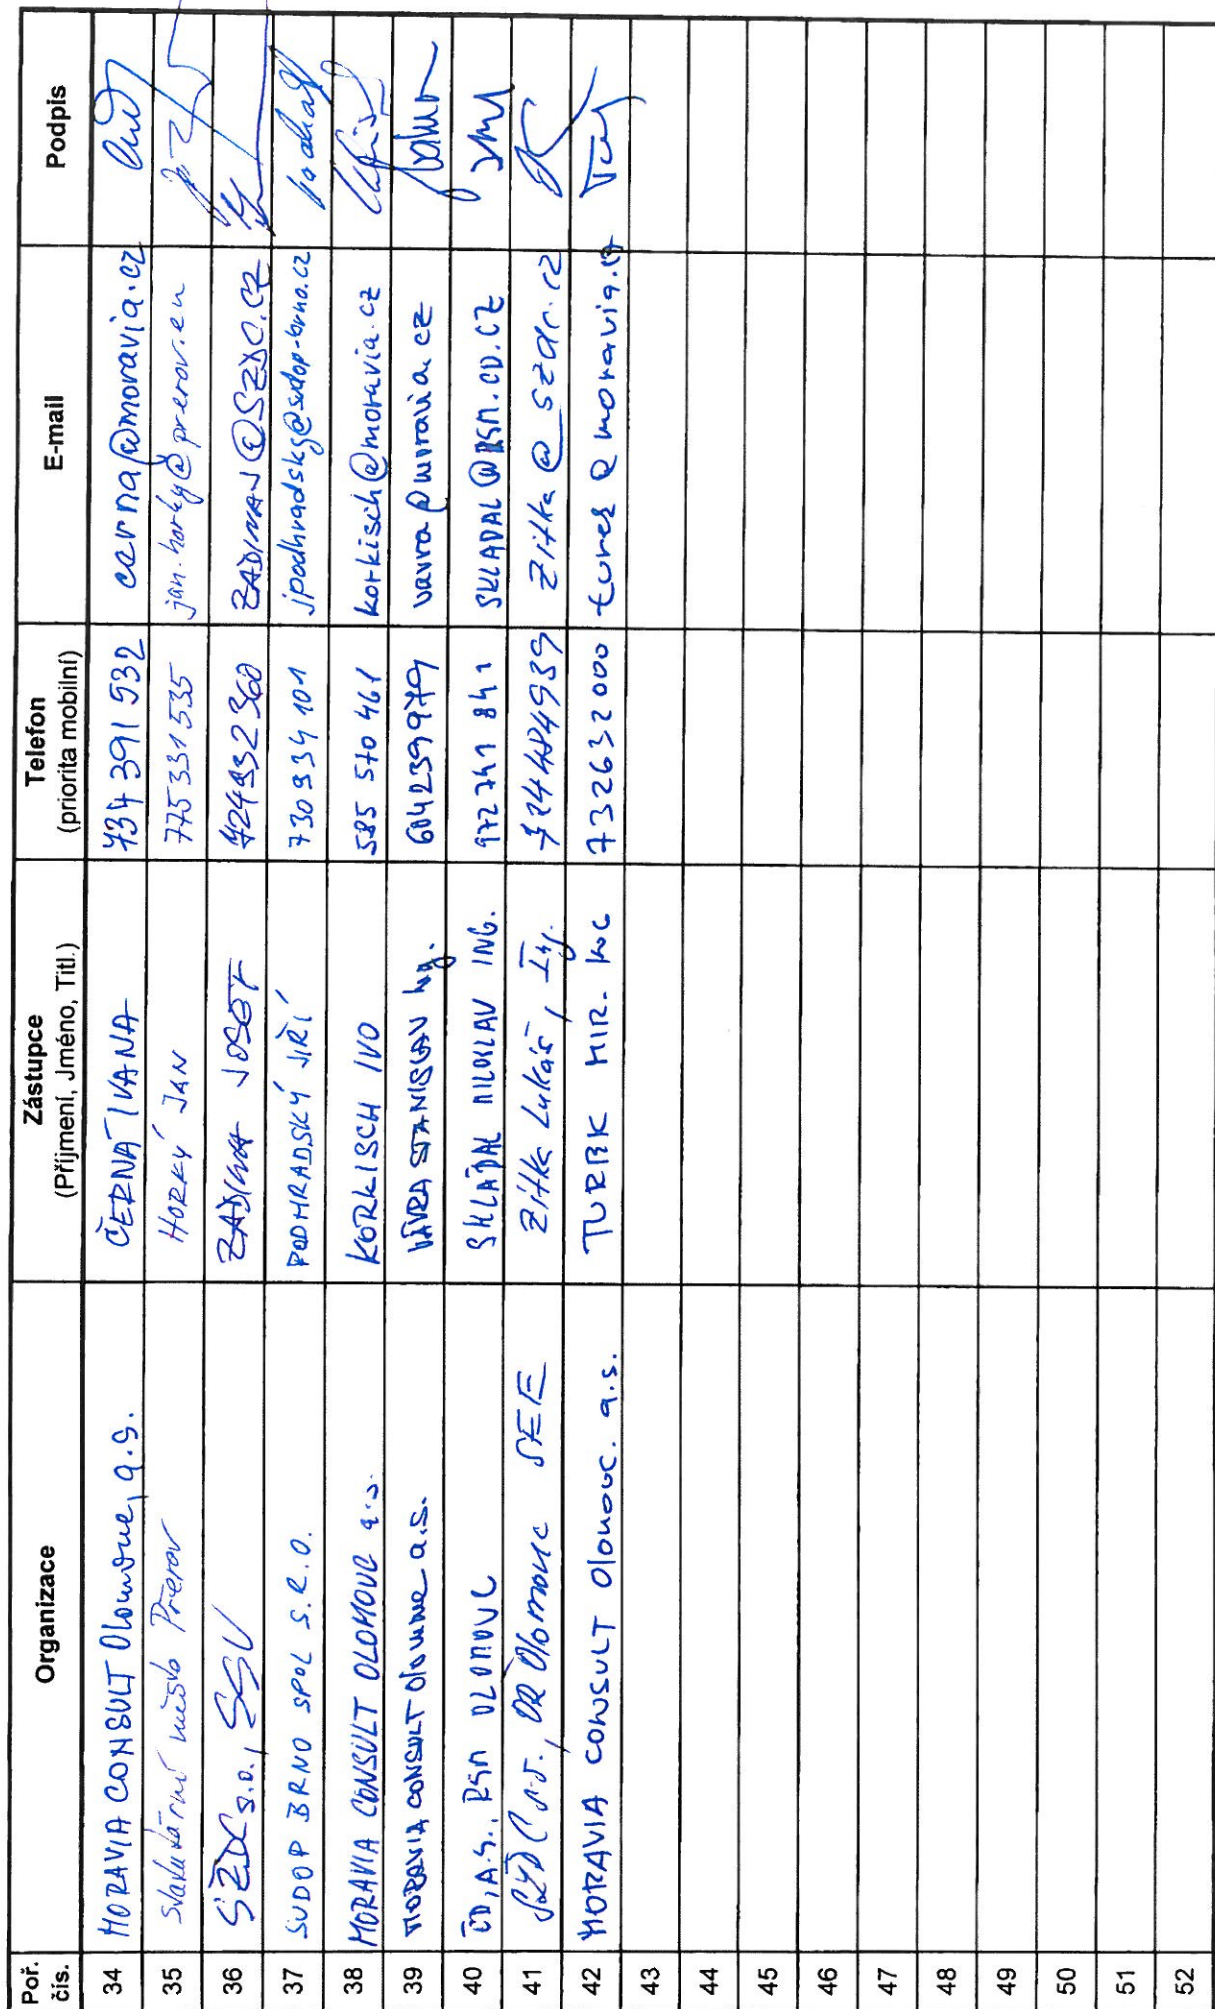 Poř. čís. Organizace Zástupce (Příjmení, Jméno, Titl.) Telefon (priorita mobilní) E-mail Podpis
34 MORAVIA CONSULT Olomouc, a.s. ČERNÁ IVANA 734 391 532 cerna@moravia.cz
35 Statutární město Přerov HORKÝ JAN 775 331 535 jan.horky@prerov.eu
36 SŽDC s.o., SSV ZADINA JOSEF 724932360 ZADINAJ@SZDC.CZ
37 SUDOP BRNO SPOL S.R.O. PODHRADSKÝ JIŘÍ 730 934 101 jpodhradsky@sudop-brno.cz
38 MORAVIA CONSULT OLOMOUC a.s. KORKISCH IVO 585 570 461 korkisch@moravia.cz
39 MORAVIA CONSULT Olomouc a.s. VÁVRA STANISLAV Ing. 604239979 vavra@moravia.cz
40 ČD, A.S., RSM OLOMOUC SKLÁDAL MILOSLAV ING. 972 741 841 SKLADAL@RSM.CD.CZ
41 SŽDC s.o., OŘ Olomouc SEE Zitka Lukáš, Ing. Zitka@szdc.cz
42 MORAVIA CONSULT Olomouc. a.s. TUREK MIR. 732632000 turek@moravia.cz
43
44
45
46
47
48
49
50
51
52